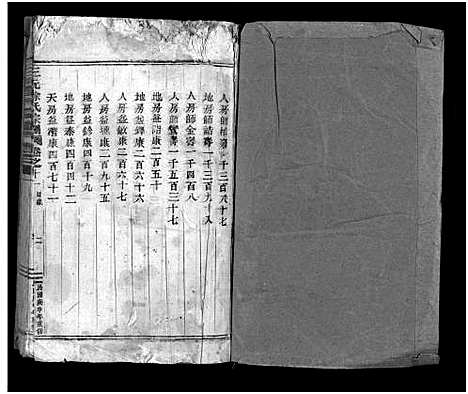 人房師 千三百八十七
地房師 壽一千三百九十八
人房師金壽一千四百八
人房師 壽一千五百三十七
地房益 康二百五十
地房益鐸康二百六十六
人房益敏康二百六十七
人房益 康二百九十五
地房益修康四百十九
地房益泰康四百四十二
天房益 康四百七十一
三元徐氏宗譜 卷之十
民國庚午年重修